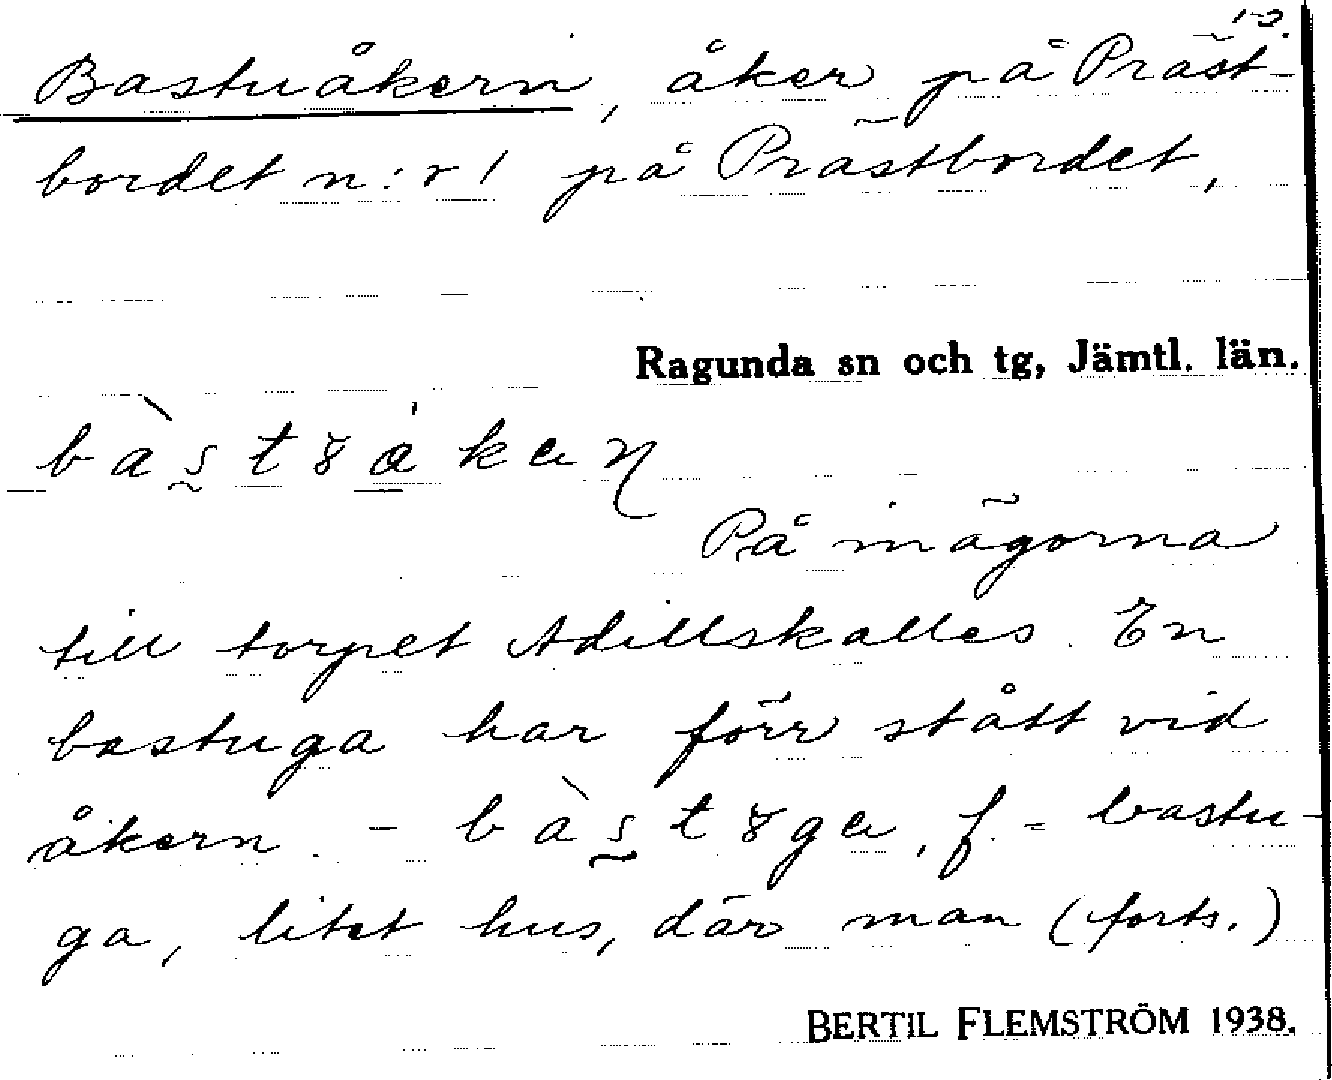 Bastuåkern, åker på Präst-
bordet n:r 1 på Prästbordet,
Ragunda sn och tg, Jämtl. län.
På inägorna
till torpet Adillskalles. En
bastuga har förr stått vid
åkern. - bàstȣga, f. = bastu-
ga, litet hus, där man (forts.)
BERTIL FLEMSTRÖM 1938.